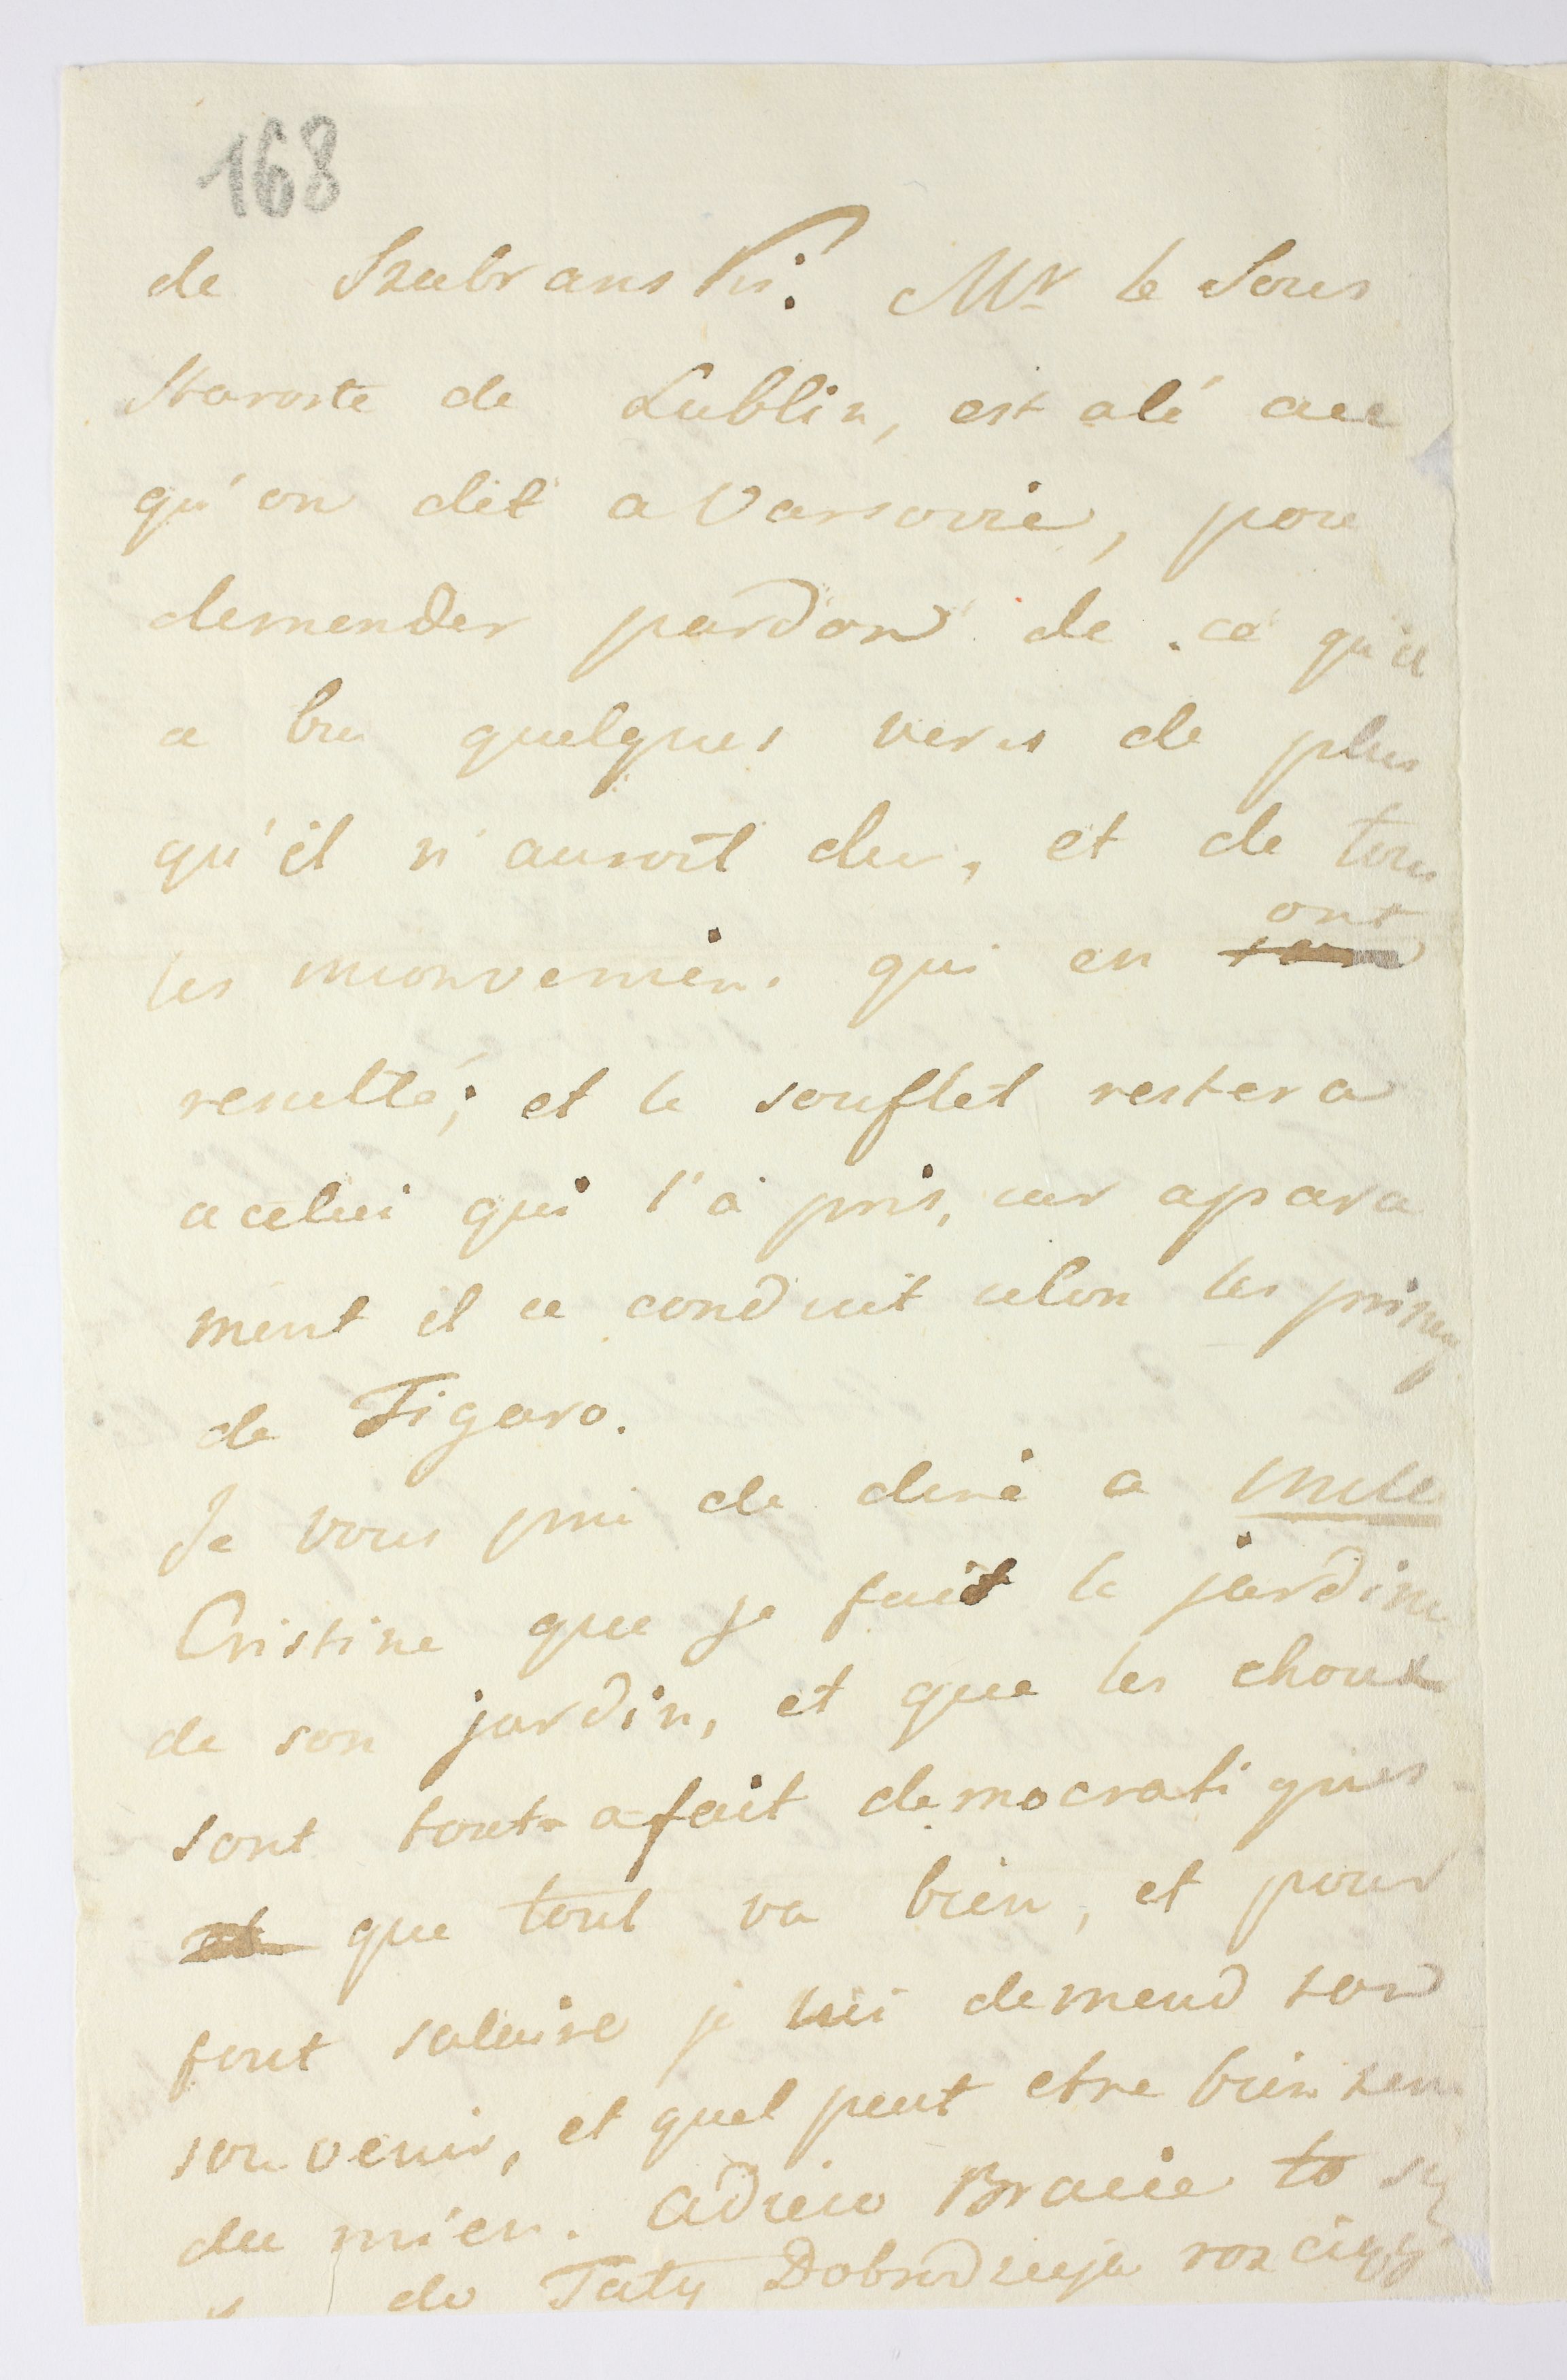 168
de Szubranski. Mr le Sous
staroste de Lublin, est alé ace
qu'on dit a Varsovie, pour
demender pardon de ce qu'il
a bu quelques veres de plus
qu'il n'auroit du, et de tous
ont
les inconvenien. qui en
resulté; et le souflet restera
a celui qui l'a pris, car apara
ment il ce conduit celon les
de Figaro.
Je vous prie de diré a Mlle
Cristine que je fait le jardin
de son jardin, et que les choux
sont tout-afait democratiques
et que tout va bien, et pour
tout salaire je lui demend son
souvenir, et quel peut etre bien
du mien. Adieu Bracie to
do Taty Dobrodzieja